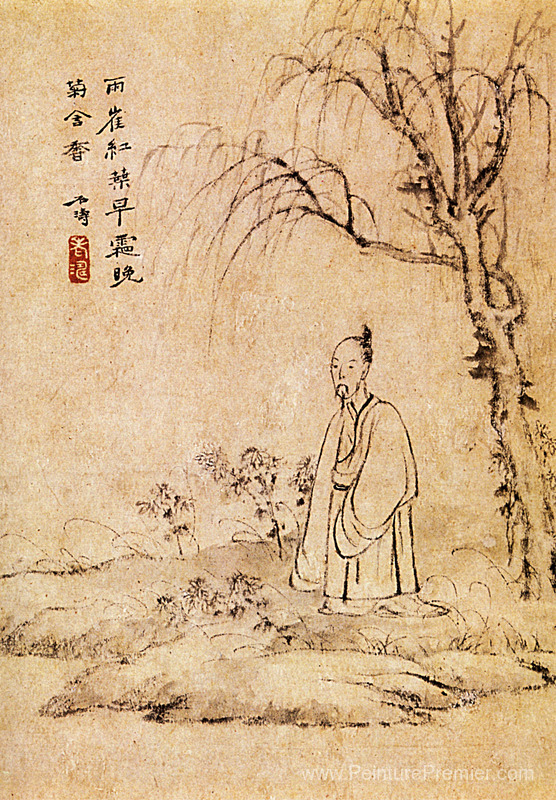 雨崔紅葉早霜晚
菊含香 石濤
老濤
www.PeinturePremier.com